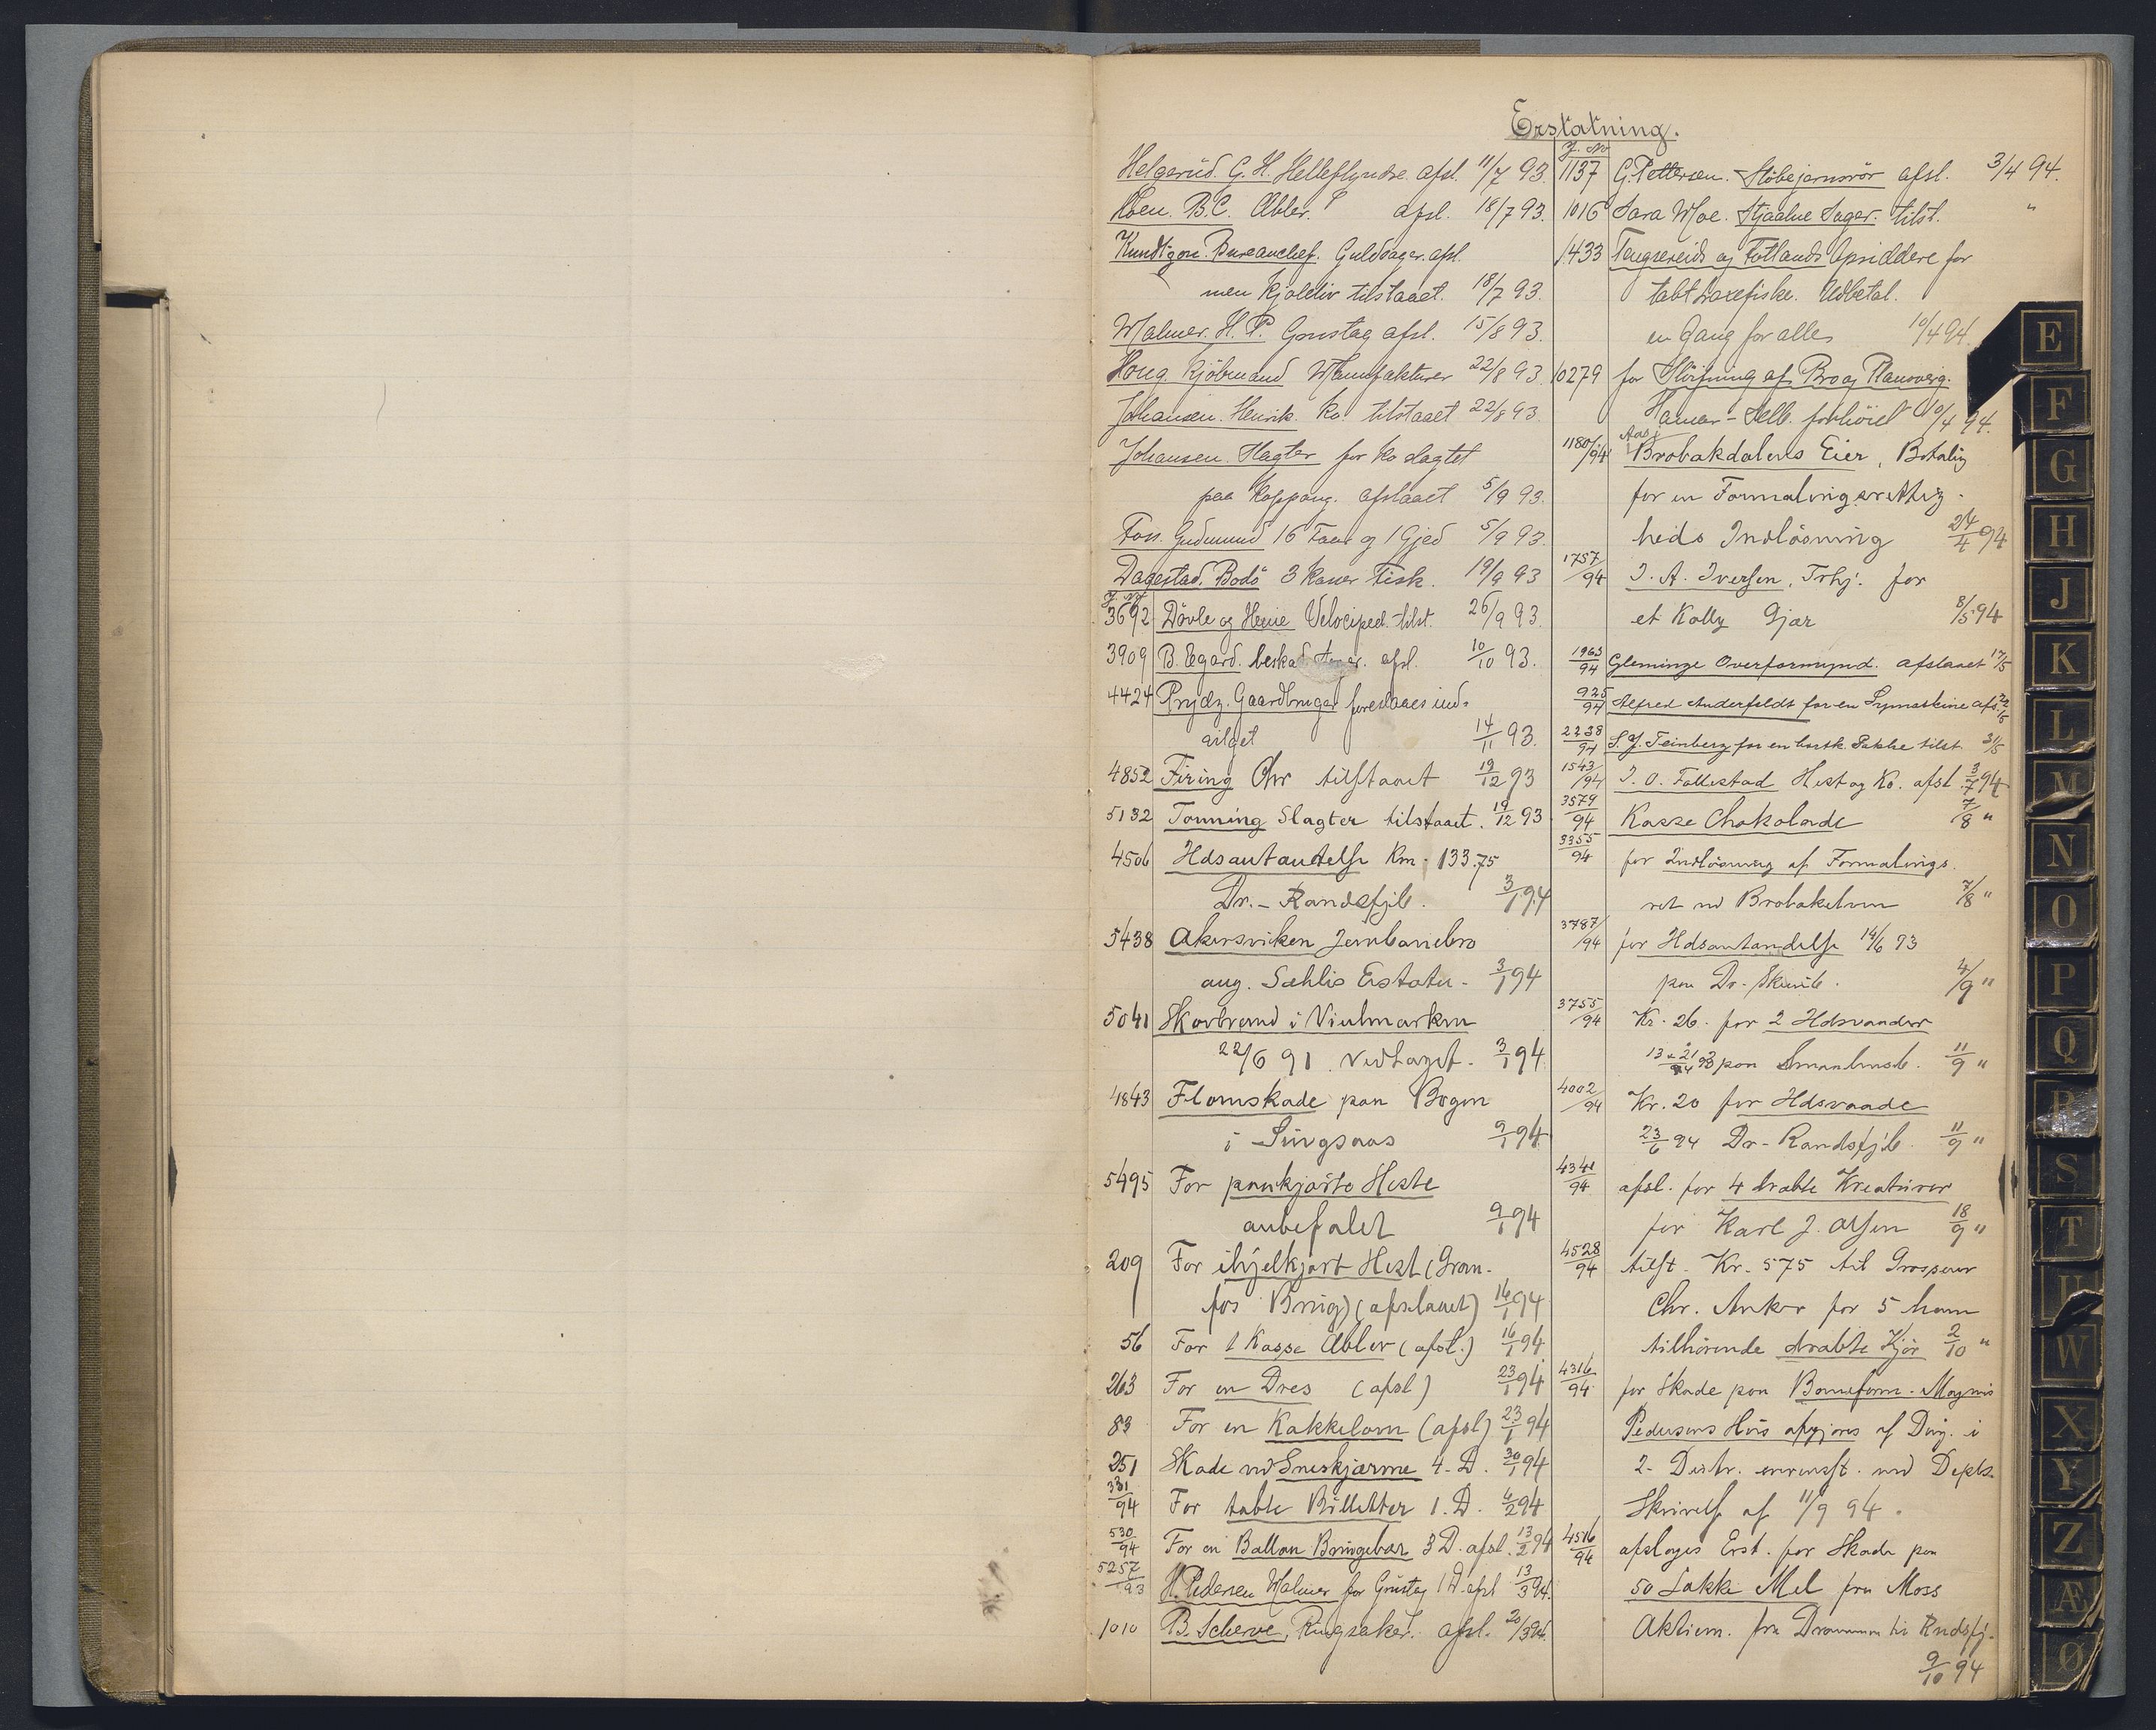 Erstatning.
Helgerud. G. H. Helleflyndre. afsl. 11/7 93.
Koen. B.C. Æbler. afsl. 18/7 93.
Knudtzon. Bureauchef. Guldsager. afsl.
men tilstaaet. 18/7 93.
Malmer. H. P. Grustag afsl. 15/8 93.
Houg. Kjöbmand Manufakturer 22/8 93
Johansen. Henrik. Ko. tilstaaet 22/8 93
Johansen. Slagter for Ko slagtet
paa Koppang. afslaaet 5/9 93.
Foss. Gudmund 16 Faar og 1 Gjed 5/9 93.
Dagestad. Bodö 3 Kasser Fisk. 19/9 93
J. No
3692 Dövle og Heeie Velociped. tilst. 26/9 93.
3909 B. Egard. beskad. afsl. 10/10 93.
4424 Prydz. Gaardbruger foreslaaes ind-
vilget 14/11 93.
4852 Firing Chr tilstaaet 19/12 93
5132 Tonning Slagter tilstaaet. 19/12 93
4506 Ildsantændelse Km. 133.75
Dr. - Randsfjb. 3/1 94
5438 Akersviken Jernbanebro
ang. Sæhlis Erstatn. 3/1 94
5041 Skovbrand i Viulmarken
22/6 91. Vedtaget. 3/1 94
4843 Flomskade paa Bogen
i Singsaas 9/1 94
5495 For paakjørte Heste
anbefalet 9/1 94
209 For ihjelkjørt Hest (Gran-
fos Brug) (afslaaet) 16/1 94
56 For 1 Kasse Æbler (afsl.) 16/1 94
263 For en Dres (afsl) 23/1 94
83 For en Kakkelovn (afsl) 23/1 94
251 Skade ved Sneskjærme 4. D. 30/1 94
331/94 For tabte Billetter 1. D. 6/2 94
530/94 For en Ballon Bringebær 3 D. afsl. 13/2 94
5257/93 H. Pedersen Malmer for Grustag 1 D. afsl 13/3 94.
1010 B. Scherve, Ringsaker. afsl. 20/3 94.
J. No
1137 G. Pettersen. Støbejernsrör afsl. 3/4 94.
1016 Sara Moe. Stjaalne Sager. tilst. "
1433 Tengsereids og Fotlands Opsiddere for
tabt Laxefiske. Udbetal.
en Gang for alle 10/4 94.
10279 for Slöifning af Bro og Planoverg.
Hamar - Selb. forhöiet 10/4 94.
1180/94 Brobakdalens Eier, Betaling
for en Formalingsrettig-
heds Indlösning 24/4 94
1757/94 I. A. Iversen, Trhj. for
et Kolly Gjær 8/5 94
1963/94 Gleminge Overformynd. afslaaet 17/5
925/94 Alfred Anderfeldt for en Symaskine afsl.
2238/94 S. J. Feinberg for en bortk. Pakke tilst. 31/5
1543/94 I. O. Follestad Hest og Ko. afsl. 3/7 94
3579/94 Kasse Chokolade 7/8 "
3355/94 for Indlösning af Formalings-
ret ved Brobakelven 7/8 "
3787/94 for Ildsantændelse 14/6 93
paa Dr. - Skienb. 4/9 "
3755/94 Kr. 26. for 2 Ildsvaader
paa Smaalensb. 11/9 "
4002/94 Kr. 20 for Ildsvaade
23/6 94 Dr - Randsfjb. 11/9 "
4341/94 afsl. for 4 dræbte Kreaturer
for Karl J. Olsen 18/9 "
4528/94 tilst. Kr. 575 til Grosserer
Chr. Anker for 5 ham
tilhörende dræbte Kjör 2/10 "
4316/94 for Skade paa Baneform. Magnus
Pedersens Hus afgjøres af Dirg. i
2. Distr. overensst. med Depts.
Skrivelse af 11/9 94.
4516/94 afslages Erst. for Skade paa
50 Sække Mel fra Moss
Aktiem. fra Drammen til Rndsfj.
9/10 94
E
F
G
H
J
K
L
M
N
O
P
Q
R
S
T
U
W
X
Y
Z
Æ
Ø